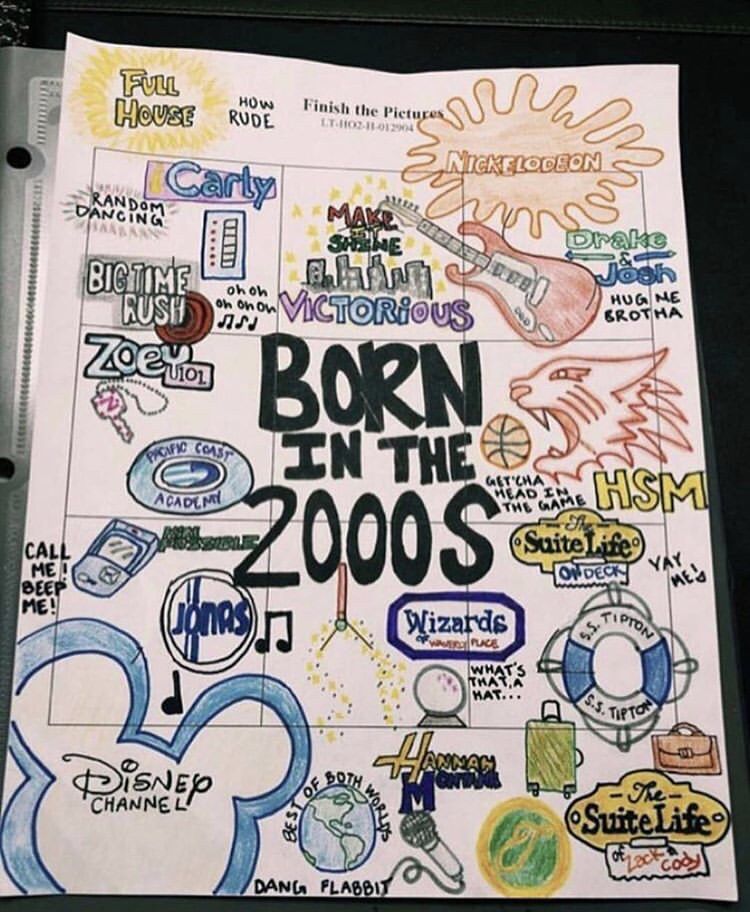 FULL
HOUSE
HOW
RUDE
Finish the Pictures
LT-HO2-H-012904
NICKELODEON
iCarly
RANDOM
DANCING
MAKE
IT
SHINE
VICTORiOUS
Drake
&
Josh
HUG ME
BROTHA
BIG TIME
RUSH
oh oh
oh oh oh
Zoey
101
Z
PACIFIC COAST
ACADEMY
BORN
IN THE
2000S
GET'CHA
HEAD IN
THE GAME
HSM
CALL
ME!
BEEP
ME!
KIM
POSSIBLE
The
Suite Life
ON DECK
YAY
ME!
JONAS
Wizards
OF WAVERLY PLACE
WHAT'S
THAT, A
HAT...
S.S. TIPTON
S.S. TIPTON
DiSNEP
CHANNEL
HANNAH
MONTANA
BEST OF BOTH WORLDS
DANG FLABBIT
The
Suite Life
of Zack &
Cody